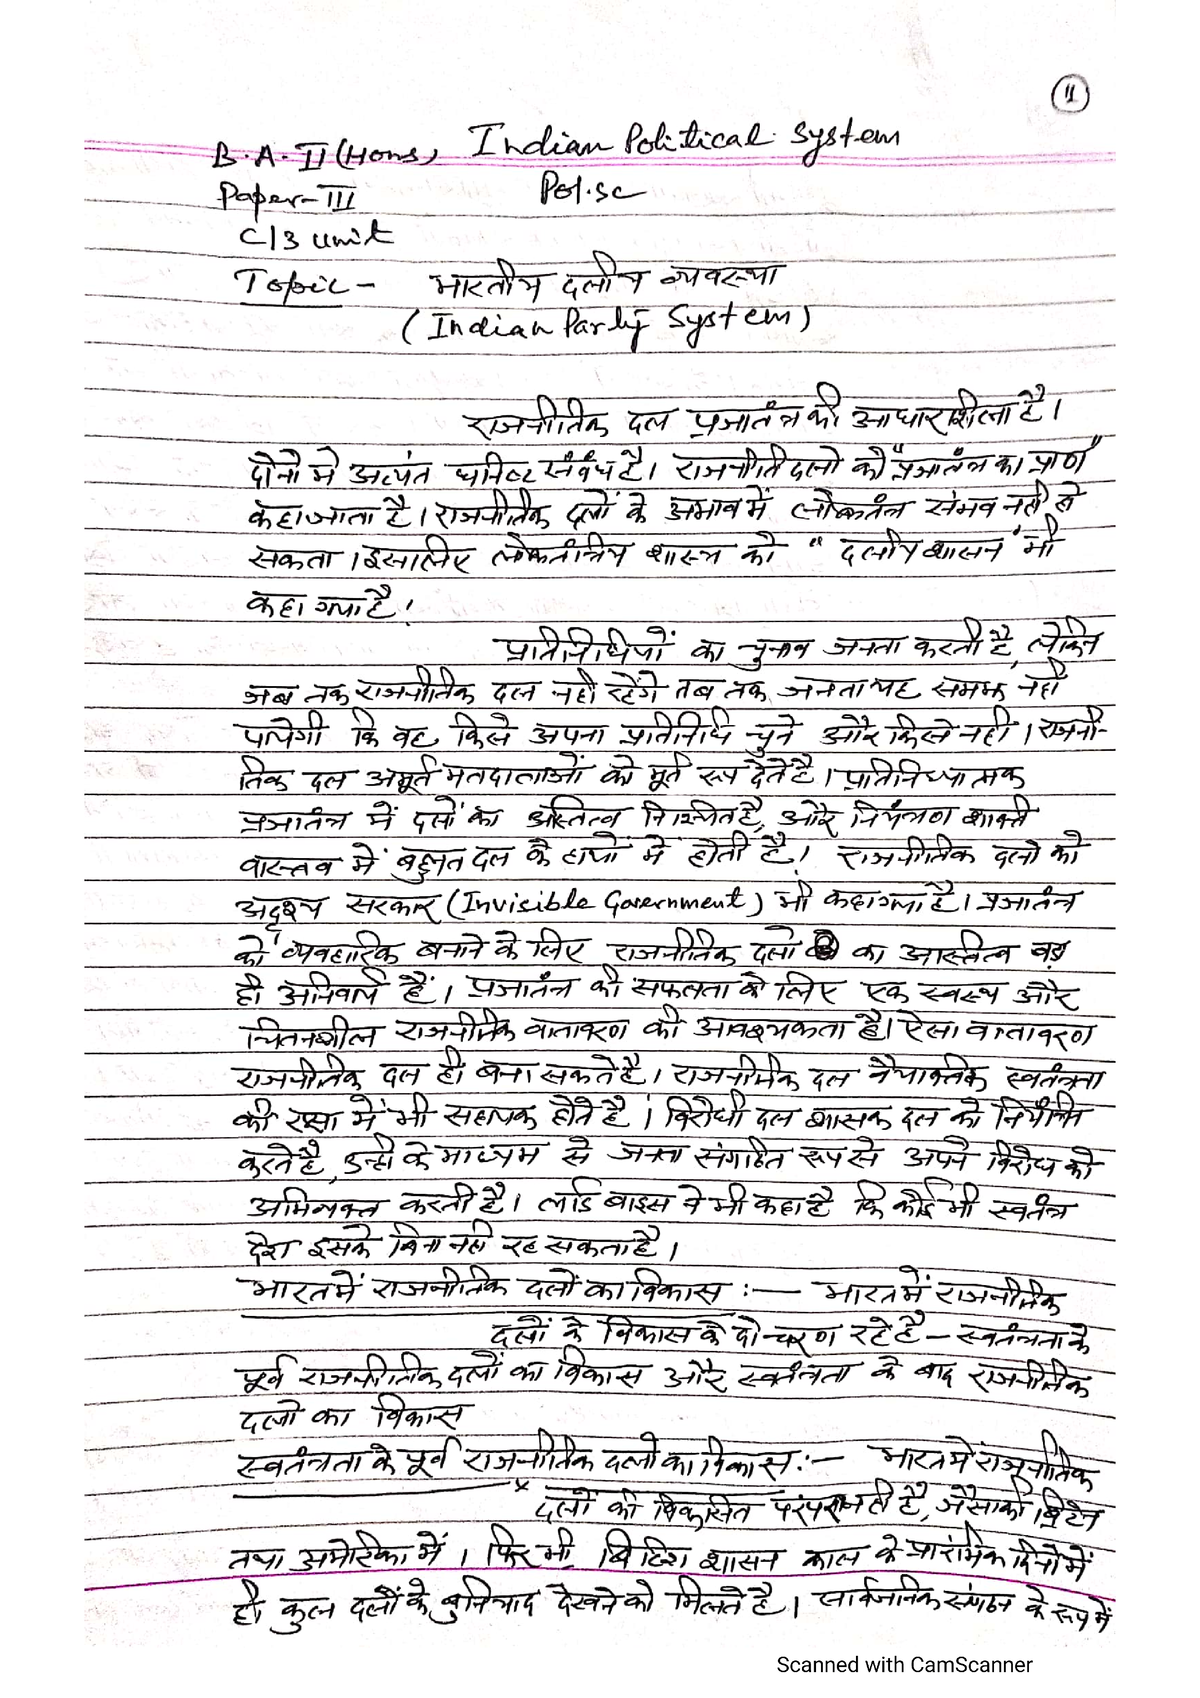 11
B.A. II (Hons) Indian Political System
Paper-III Pol.sc
C/3 unit
Topic - भारतीय दलीय व्यवस्था
(Indian Party System)
राजनीतिक दल प्रजातंत्र की आधारशिला है।
दोनो मे अत्यंत घनिष्ट संबंध है। राजनीति दलो को "प्रजातंत्र का प्राण"
कहा जाता है। राजनीतिक दलों के अभाव में लोकतंत्र संभव नही हो
सकता । इसलिए लोकतांत्रिय शास्त्र को "दलीय शासन" भी
कहा गया है।
प्रतिनिधियों का चुनाव जनता करती है, लेकिन
जब तक राजनीतिक दल नही रहेंगे तब तक जनता यह समझ नही
पायेगी कि वह किसे अपना प्रतिनिधि चुने और किसे नही । राजनी-
तिक दल अमूर्त मतदाताओं को मूर्त रूप देते है। प्रतिनिध्यात्मक
प्रजातंत्र में दलों का अस्तित्व निश्चित है, और नियंत्रण शक्ति
वास्तव में बहुमत दल के हाथों में होती है। राजनीतिक दलो को
अदृश्य सरकार (Invisible Government) भी कहा गया है। प्रजातंत्र
को व्यवहारिक बनाने के लिए राजनीतिक दलो का अस्तित्व बड़
ही अनिवार्य हैं। प्रजातंत्र की सफलता के लिए एक स्वस्थ और
चिंतनशील राजनीतिक वातावरण की आवश्यकता है। ऐसा वातावरण
राजनीतिक दल ही बना सकते है। राजनीतिक दल वैयाक्तिक स्वतंत्रता
की रक्षा में भी सहायक होते है। विरोधी दल शासक दल को नियंत्रित
करते है, इन्ही के माध्यम से जनता संगठित रूप से अपने विरोध को
अभिव्यक्त करती है। लार्ड ब्राइस ने भी कहा है कि कोई भी स्वतंत्र
देश इसके बिना नही रह सकता है।
भारत में राजनीतिक दलों का विकास :— भारत में राजनीतिक
दलों के विकास के दो चरण रहे है – स्वतंत्रता के
पूर्व राजनीतिक दलों का विकास और स्वतंत्रता के बाद राजनीतिक
दलो का विकास
स्वतंत्रता के पूर्व राजनीतिक दलो का विकास :— भारत में राजनीतिक
दलों की विकसित परंपरा नही है, जैसा कि ब्रिटेन
तथा अमेरिका में । फिर भी ब्रिटिश शासन काल के प्रारंभिक दिनों में
ही कुछ दलों के बुनियाद देखने को मिलते है। सार्वजनिक संगठन के रूप में
Scanned with CamScanner